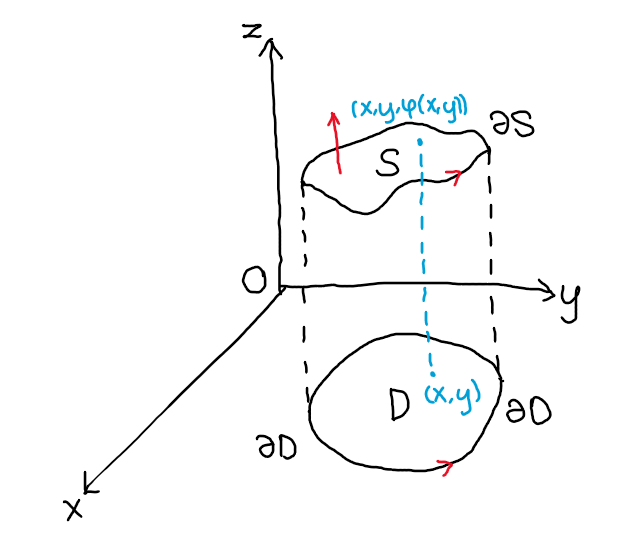 z
(x,y,φ(x,y))
∂S
S
O
y
D
(x,y)
∂D
∂D
x